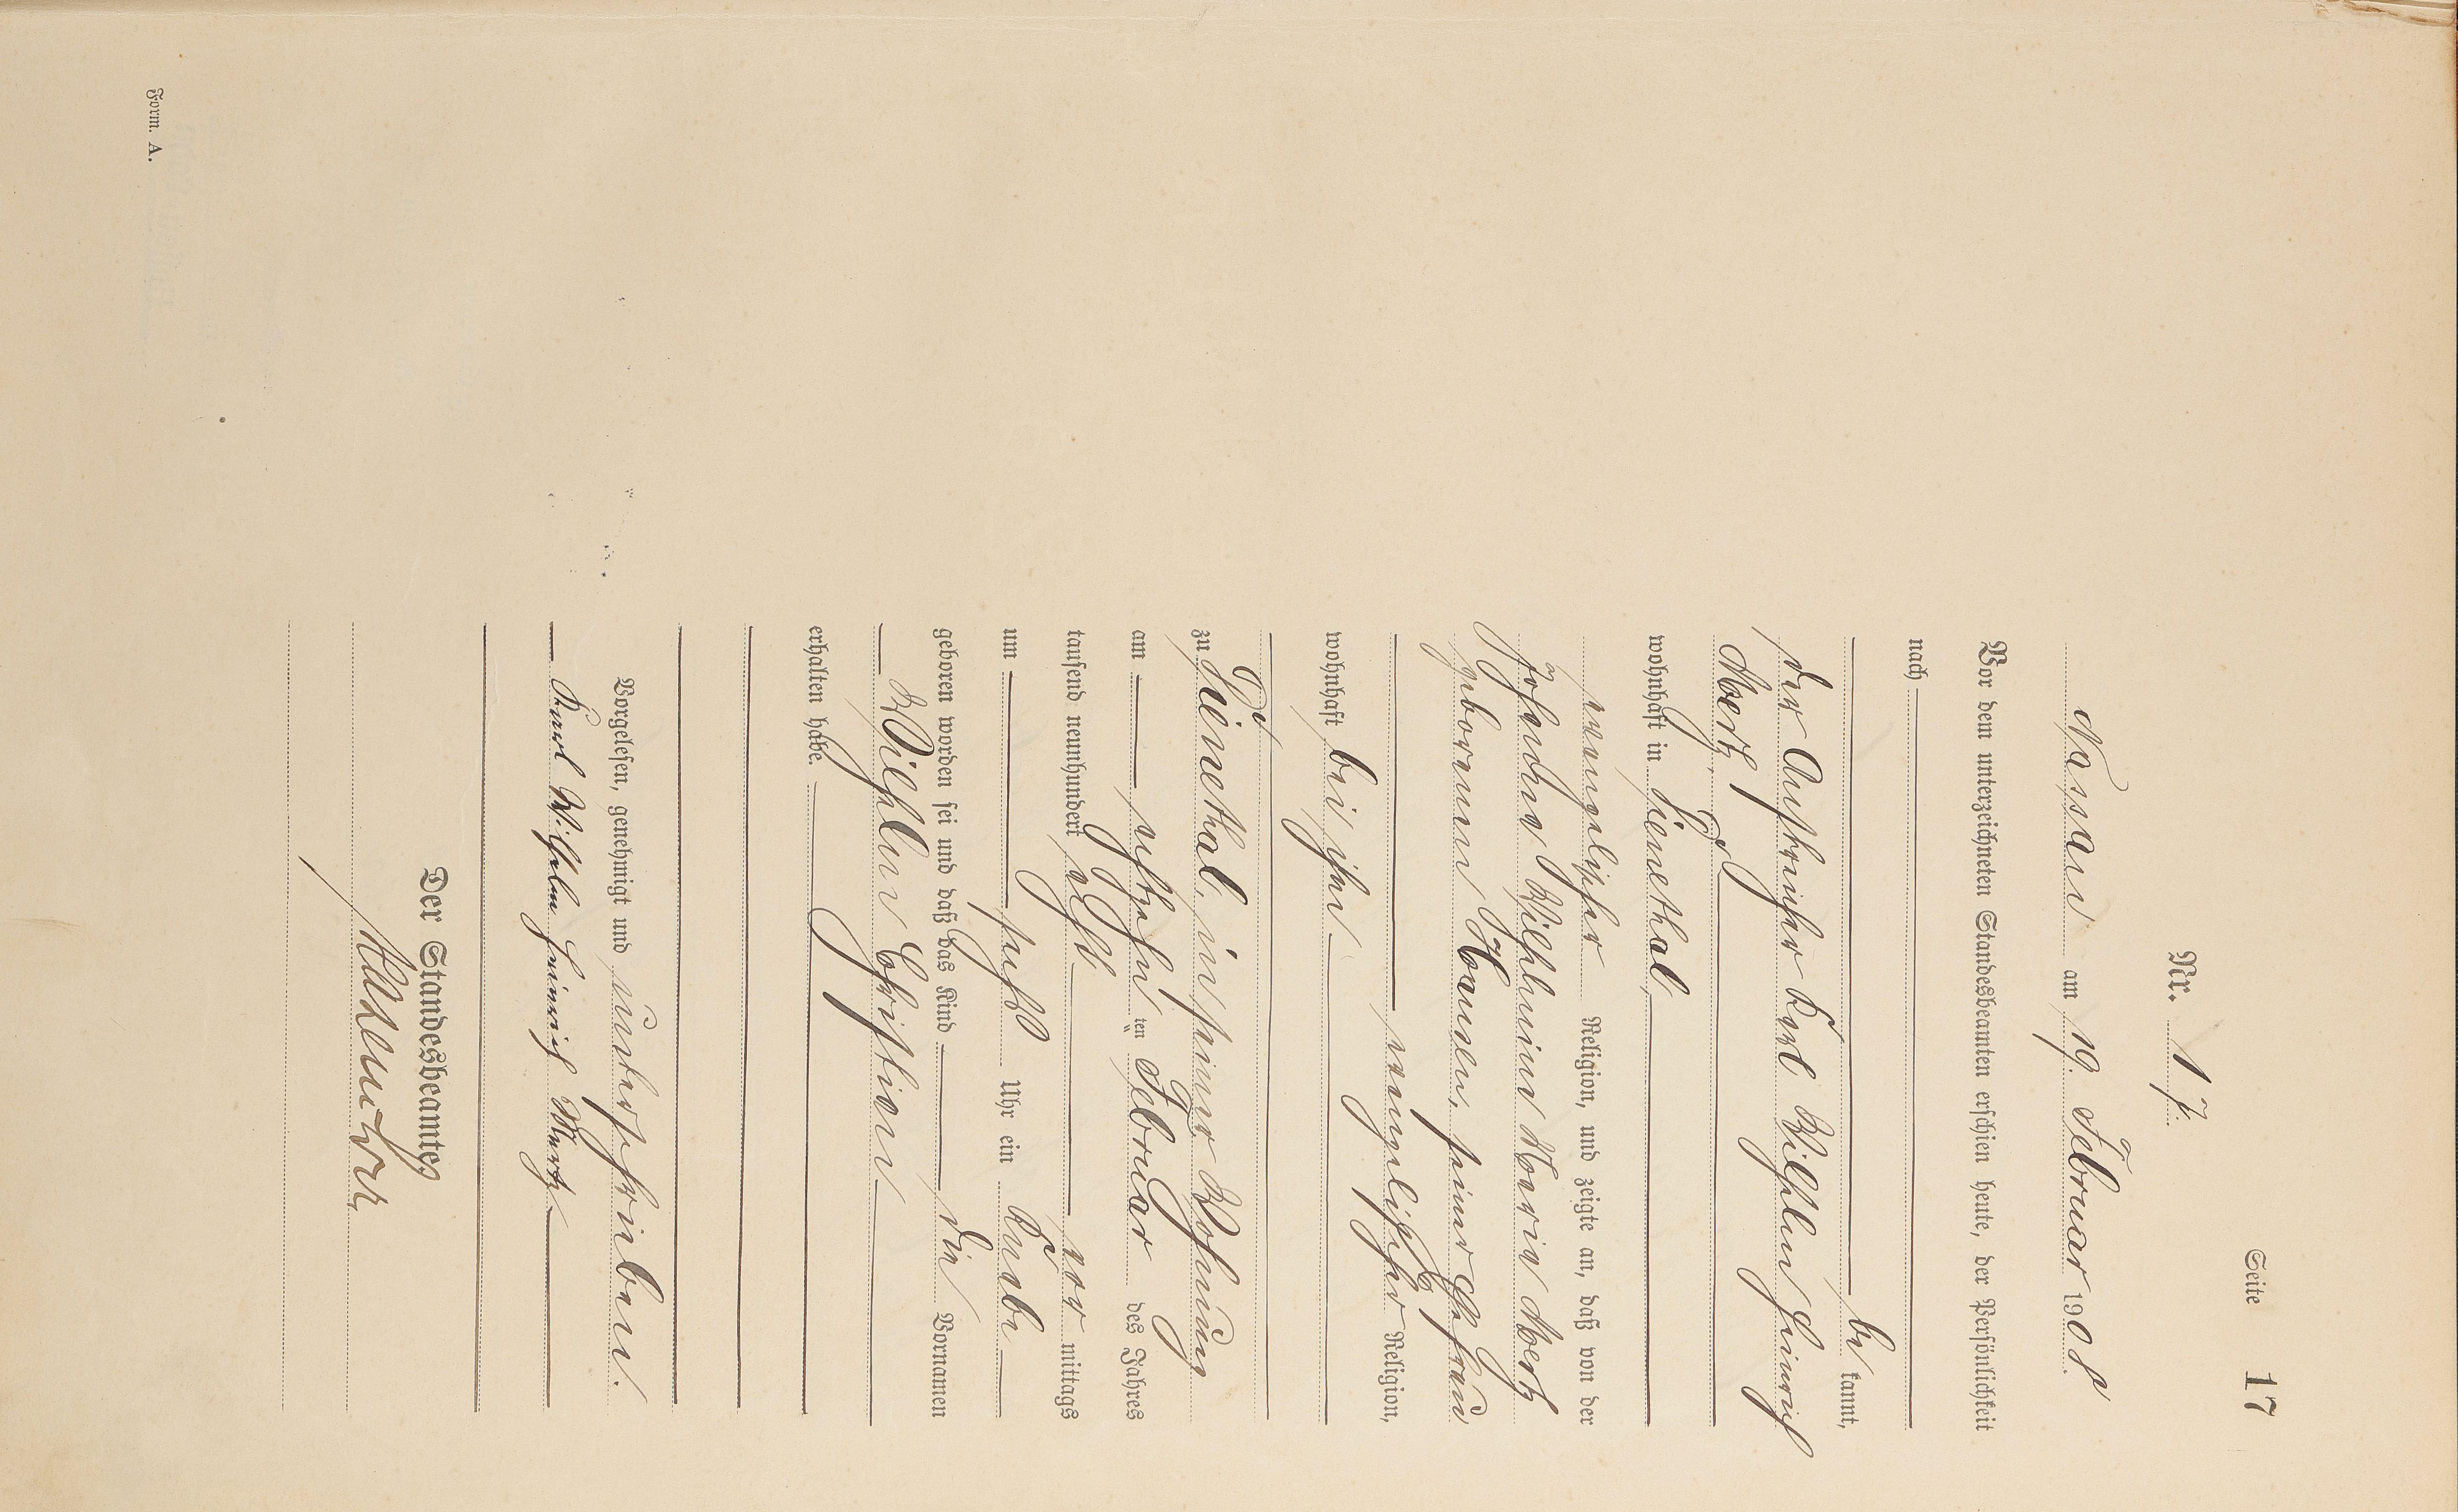 Seite 17
Nr. 17.
Nassau am 19. Februar 1908.
Vor dem unterzeichneten Standesbeamten erschien heute, der Persönlichkeit
nach
be kannt,
der Anstreicher Carl Wilhelm Heinrich
Mertz,
wohnhaft in Dienethal,
evangelischer Religion, und zeigte an, daß von der
Johanna Wilhelmine Maria Mertz
geborenen seiner Ehefrau
evangelischer Religion,
wohnhaft bei ihm
zu Dienethal, in seiner Wohnung
am achtzehn ten Februar des Jahres
tausend neunhundert acht vor mittags
um sechs Uhr ein Knabe
geboren worden sei und daß das Kind die Vornamen
Wilhelm Christian
erhalten habe.
Vorgelesen, genehmigt und unterschrieben.
Karl Wilhelm Heinrich Mertz
Der Standesbeamte.
Form. A.